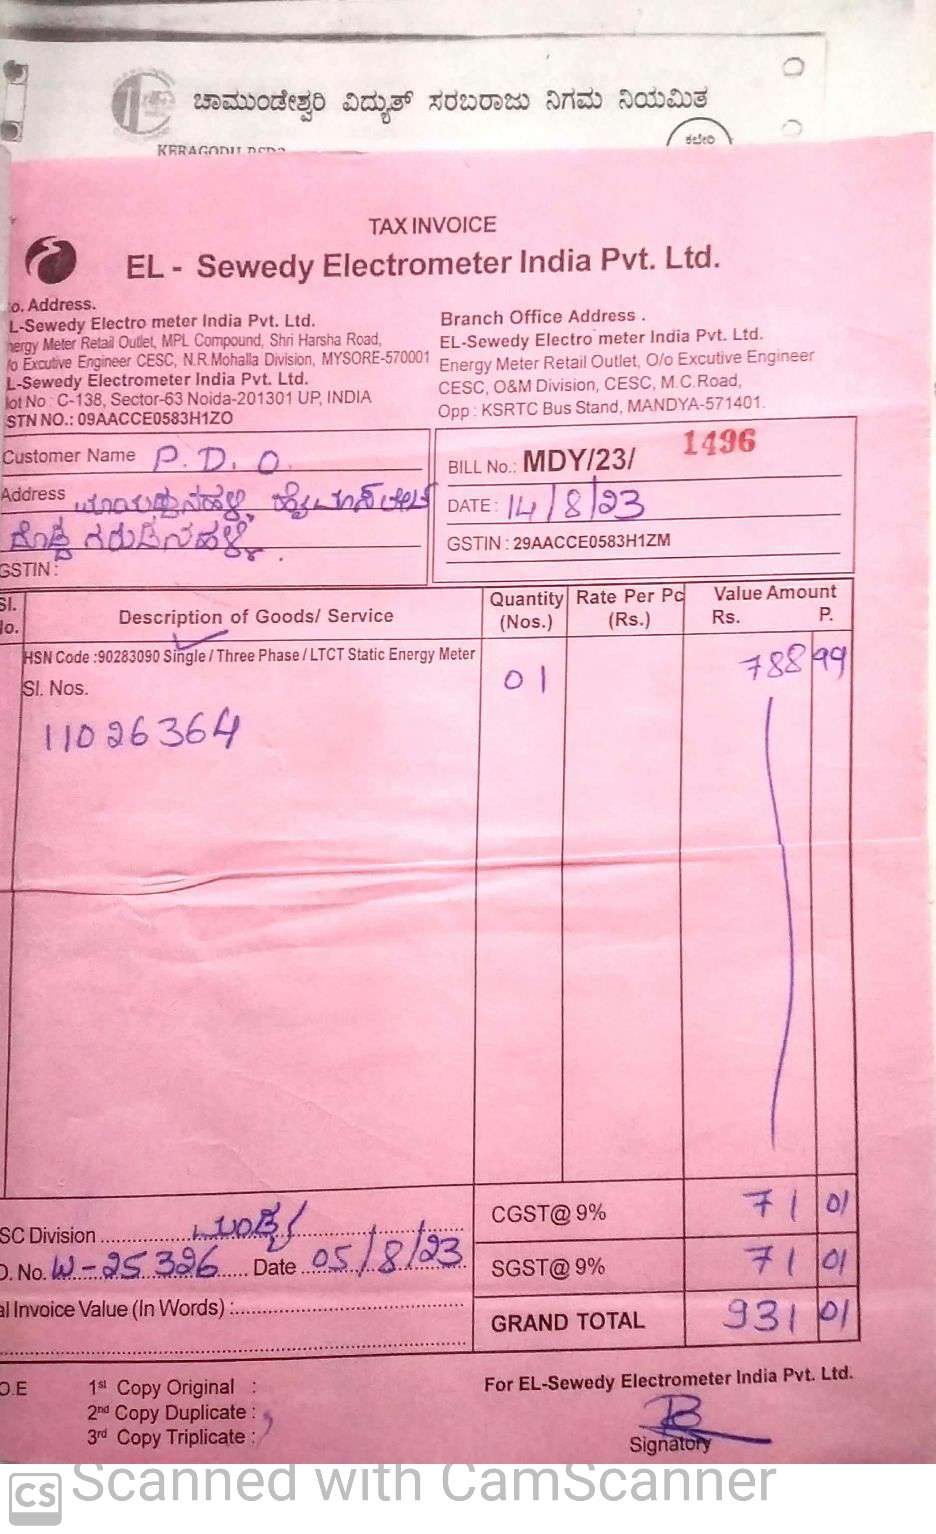 ಚಾಮುಂಡೇಶ್ವರಿ ವಿದ್ಯುತ್ ಸರಬರಾಜು ನಿಗಮ ನಿಯಮಿತ
ಕಛೇರಿ
TAX INVOICE
EL - Sewedy Electrometer India Pvt. Ltd.
o. Address.
L-Sewedy Electro meter India Pvt. Ltd.
nergy Meter Retail Outlet, MPL Compound, Shri Harsha Road,
/o Excutive Engineer CESC, N.R.Mohalla Division, MYSORE-570001
L-Sewedy Electrometer India Pvt. Ltd.
lot No : C-138, Sector-63 Noida-201301 UP, INDIA
STN NO.: 09AACCE0583H1ZO
Branch Office Address .
EL-Sewedy Electro meter India Pvt. Ltd.
Energy Meter Retail Outlet, O/o Excutive Engineer
CESC, O&M Division, CESC, M.C.Road,
Opp : KSRTC Bus Stand, MANDYA-571401.
Customer Name P. D. O.
Address
ದೊಡ್ಡ ಗರುಡನಹಳ್ಳಿ.
GSTIN :
BILL No.: MDY/23/ 1496
DATE : 14/8/23
GSTIN : 29AACCE0583H1ZM
Sl. No. Description of Goods/ Service Quantity (Nos.) Rate Per Pc (Rs.) Value Amount Rs. P.
HSN Code :90283090 Single / Three Phase / LTCT Static Energy Meter
Sl. Nos. 01 788 99
11026364
SC Division ಮಂಡ್ಯ CGST@ 9% 71 01
O. No. W-25326 Date 05/8/23 SGST@ 9% 71 01
al Invoice Value (In Words) :
GRAND TOTAL 931 01
O.E 1st Copy Original :
2nd Copy Duplicate :
3rd Copy Triplicate :
For EL-Sewedy Electrometer India Pvt. Ltd.
Signatory
CS Scanned with CamScanner